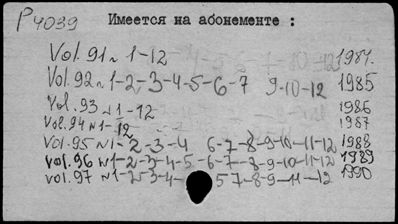 P4039 Имеется на абонементе :
Vol. 91 № 1-12 1984.
Vol. 92 № 1-2-3-4-5-6-7 9-10-12 1985
Vol. 93 №1-12 1986
Vol. 94 №1-12 1987
Vol. 95 №1-2-3-4 6-7-8-9-10-11-12 1988
vol. 96 №1-2-3-4-5-6-7-8-9-10-11-12 1989
vol. 97 №1-2-3-4- 5 7-8-9-11-12 1990